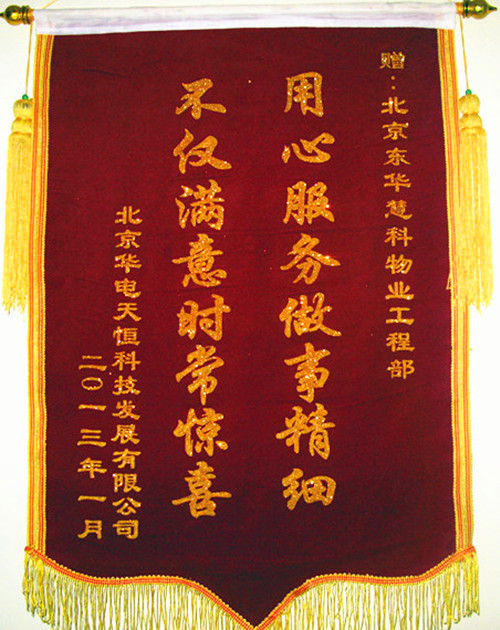 赠：北京东华慧科物业工程部
用心服务做事精细
不仅满意时常惊喜
北京华电天恒科技发展有限公司
二〇一三年一月